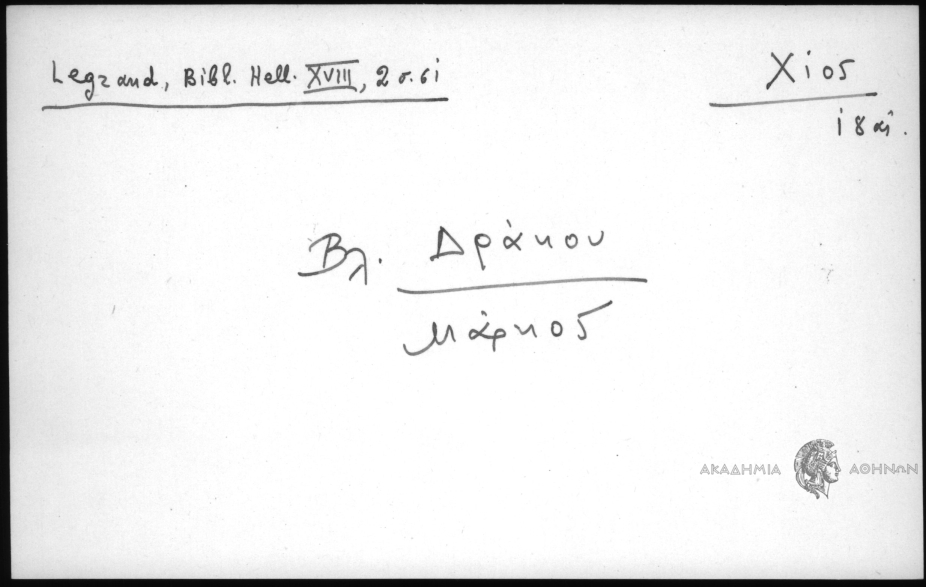 Legrand, Bibl. Hell. XVIII, 2 σ. 61
Χίος
18 αἰ.
Βλ. Δράκου
Μάρκος
ΑΚΑΔΗΜΙΑ ΑΘΗΝΩΝ